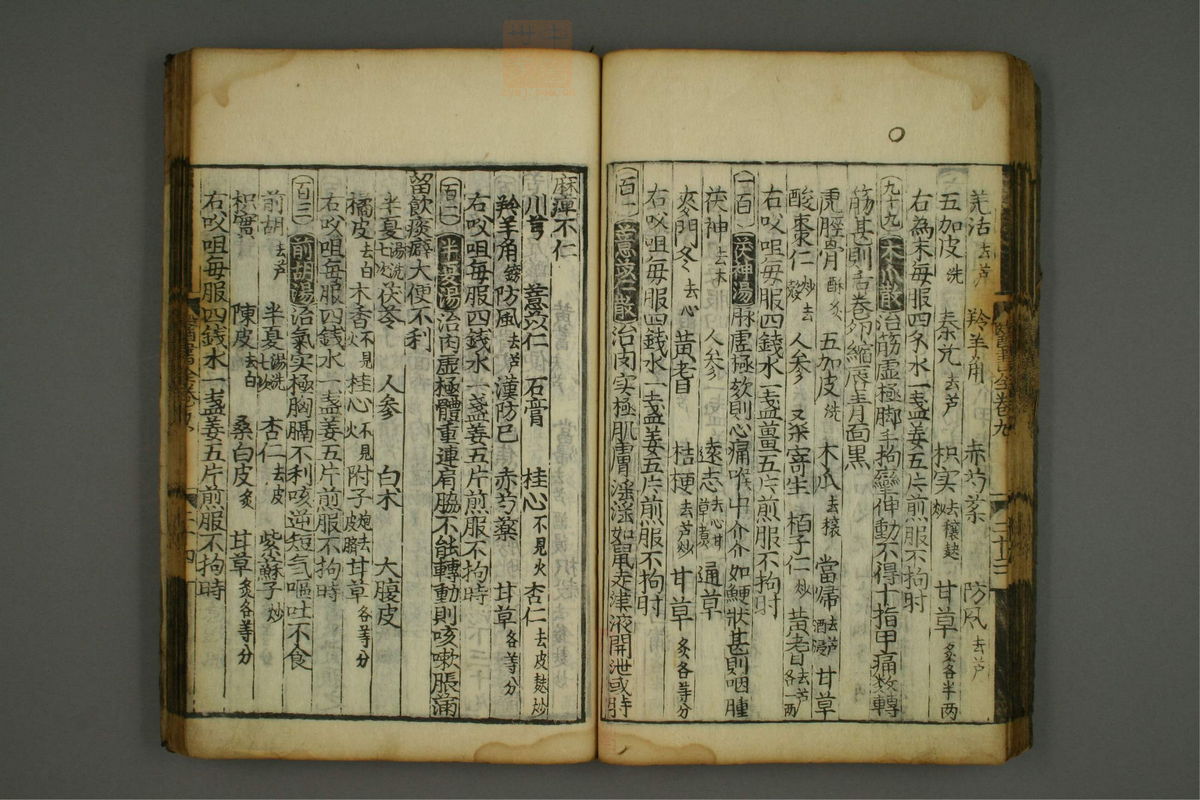 羌活去芦 羚羊角 赤芍藥 防风去芦
五加皮洗 秦艽去芦 枳实去穰麸炒 甘草炙各半两
右為末每服四錢水一盞姜五片煎服不拘时
九十九 木瓜散 治筋虛極脚手拘攣伸動不得十指甲痛数轉
筋甚則舌卷卵縮唇青面黑
虎脛骨酥炙 五加皮洗 木瓜去穰 當帰去芦酒浸 甘草
酸棗仁炒去殻 人参 桑寄生 栢子仁炒 黄耆去芦各一两
右㕮咀每服四錢水一盞薑五片煎服不拘时
一百 茯神湯 脉虛極欬則心痛喉中介介如鯁狀甚則咽腫
茯神去木 人参 遠志去心甘草煮 通草
麥門冬去心 黄耆 桔梗去芦炒 甘草炙各等分
右㕮咀每服四錢水一盞姜五片煎服不拘时
百一 薏苡仁散 治肉实極肌膚淫淫如鼠走津液開泄或时
麻痺不仁
川芎 薏苡仁 石膏 桂心不見火 杏仁去皮麸炒
羚羊角鎊 防風去芦 漢防已 赤芍藥 甘草各等分
右㕮咀每服四錢水一盞姜五片煎服不拘時
百二 半夏湯 治肉虛極體重連肩脇不能轉動則咳嗽脹滿
留飲痰癖大便不利
半夏湯洗七次 茯苓 人参 白术 大腹皮
橘皮去白 木香不見火 桂心不見火 附子炮去皮臍 甘草各等分
右㕮咀每服四錢水一盞姜五片煎服不拘時
百三 前胡湯 治氣实極胸膈不利咳逆短气嘔吐不食
前胡去芦 半夏湯洗七次 杏仁去皮 紫蘇子炒
枳實 陳皮去白 桑白皮炙 甘草炙各等分
右㕮咀每服四錢水一盞姜五片煎服不拘時